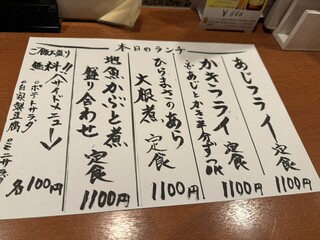 本日のランチ
あじフライ定食
1100円
かきフライ定食
※あじとかき半分ずつOK
1100円
ひらまさのあら
大根煮定食
1100円
地魚かぶと煮
盛り合わせ定食
1100円
ご飯大盛り
無料!!
サイドメニュー
○ポテトサラダ
○自家製豆腐
○ミニサラダ
各100円